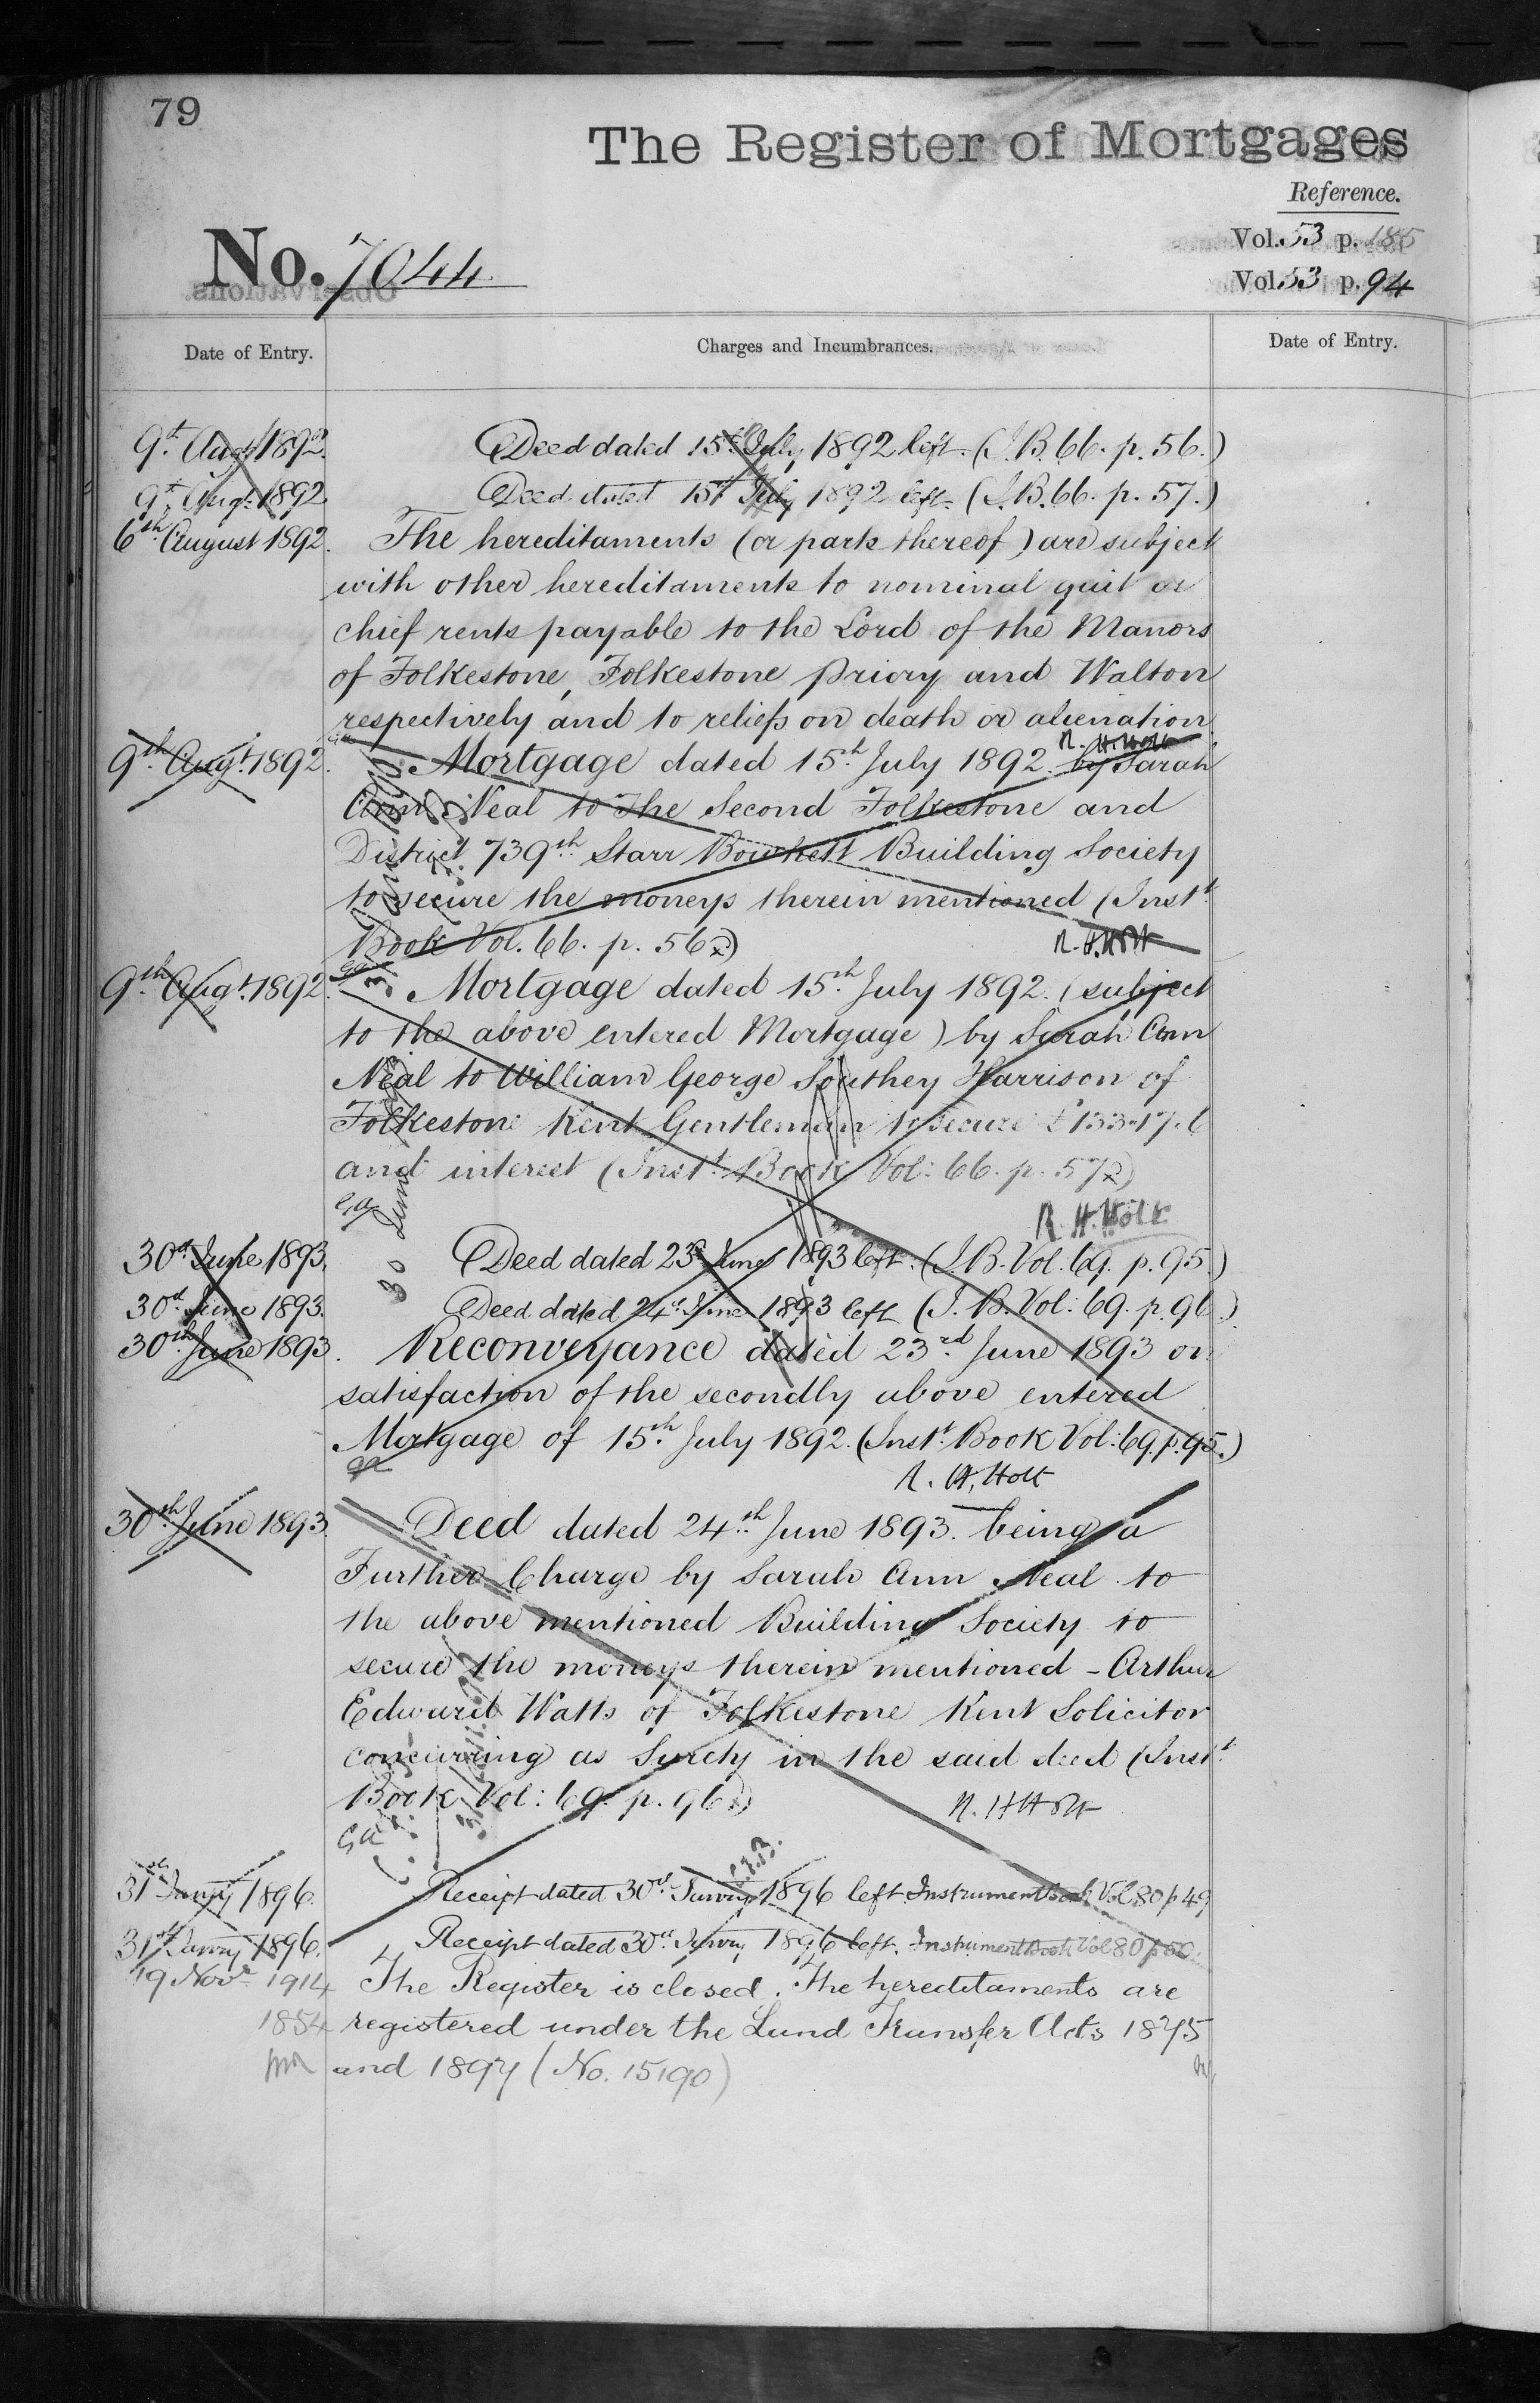 79
The Register of Mortgages
Reference.
Vol. 53 p. 185
No. 7044
Vol. 53 p. 94
Date of Entry.
Charges and Incumbrances.
Date of Entry.
9th Augt 1892. Deed dated 15th July 1892 left. (I.B. 66. p. 56.)
9th Augt 1892 Deed dated 15th July 1892 left. (I.B. 66. p. 57.)
6th August 1892. The hereditaments (or parts thereof) are subject
with other hereditaments to nominal quit or
chief rents payable to the Lord of the Manors
of Folkestone, Folkestone Priory and Walton
respectively and to reliefs on death or alienation.
R. H. Holt
9th Augt. 1892. Mortgage dated 15th July 1892. by Sarah
Ann Neal to The Second Folkestone and
District 739th Starr Bowkett Building Society
to secure the moneys therein mentioned (Inst.t
Book Vol. 66. p. 56.)
R. H. Holt
9th Augt. 1892. Mortgage dated 15th July 1892. (subject
to the above entered Mortgage) by Sarah Ann
Neal to William George Southey Harrison of
Folkestone Kent Gentleman to secure £133.17.6
and interest (Inst.t Book Vol: 66. p. 57.)
R. H. Holt
30th June 1893. Deed dated 23rd June 1893 left. (I.B. Vol. 69. p. 95.)
30th June 1893. Deed dated 24th June 1893 left (I.B. Vol: 69. p. 96.)
30th June 1893. Reconveyance dated 23rd June 1893 on
satisfaction of the secondly above entered
Mortgage of 15th July 1892. (Inst.t Book Vol: 69. p. 95.)
R. H. Holt
30th June 1893. Deed dated 24th June 1893. being a
Further Charge by Sarah Ann Neal to
the above mentioned Building Society to
secure the moneys therein mentioned - Arthur
Edward Watts of Folkestone Kent Solicitor
concurring as Surety in the said deed (Inst.t
Book Vol: 69. p. 96.)
R. H. Holt
31st Janry 1896. Receipt dated 30th Janry 1896 left Instrument Book Vol 80 p 49
31st Janry 1896. Receipt dated 30th Janry 1896 left. Instrument Book Vol 80 p 50.
19 Novr 1914 The Register is closed. The hereditaments are
1854 registered under the Land Transfer Acts 1875
and 1897 (No. 15190)